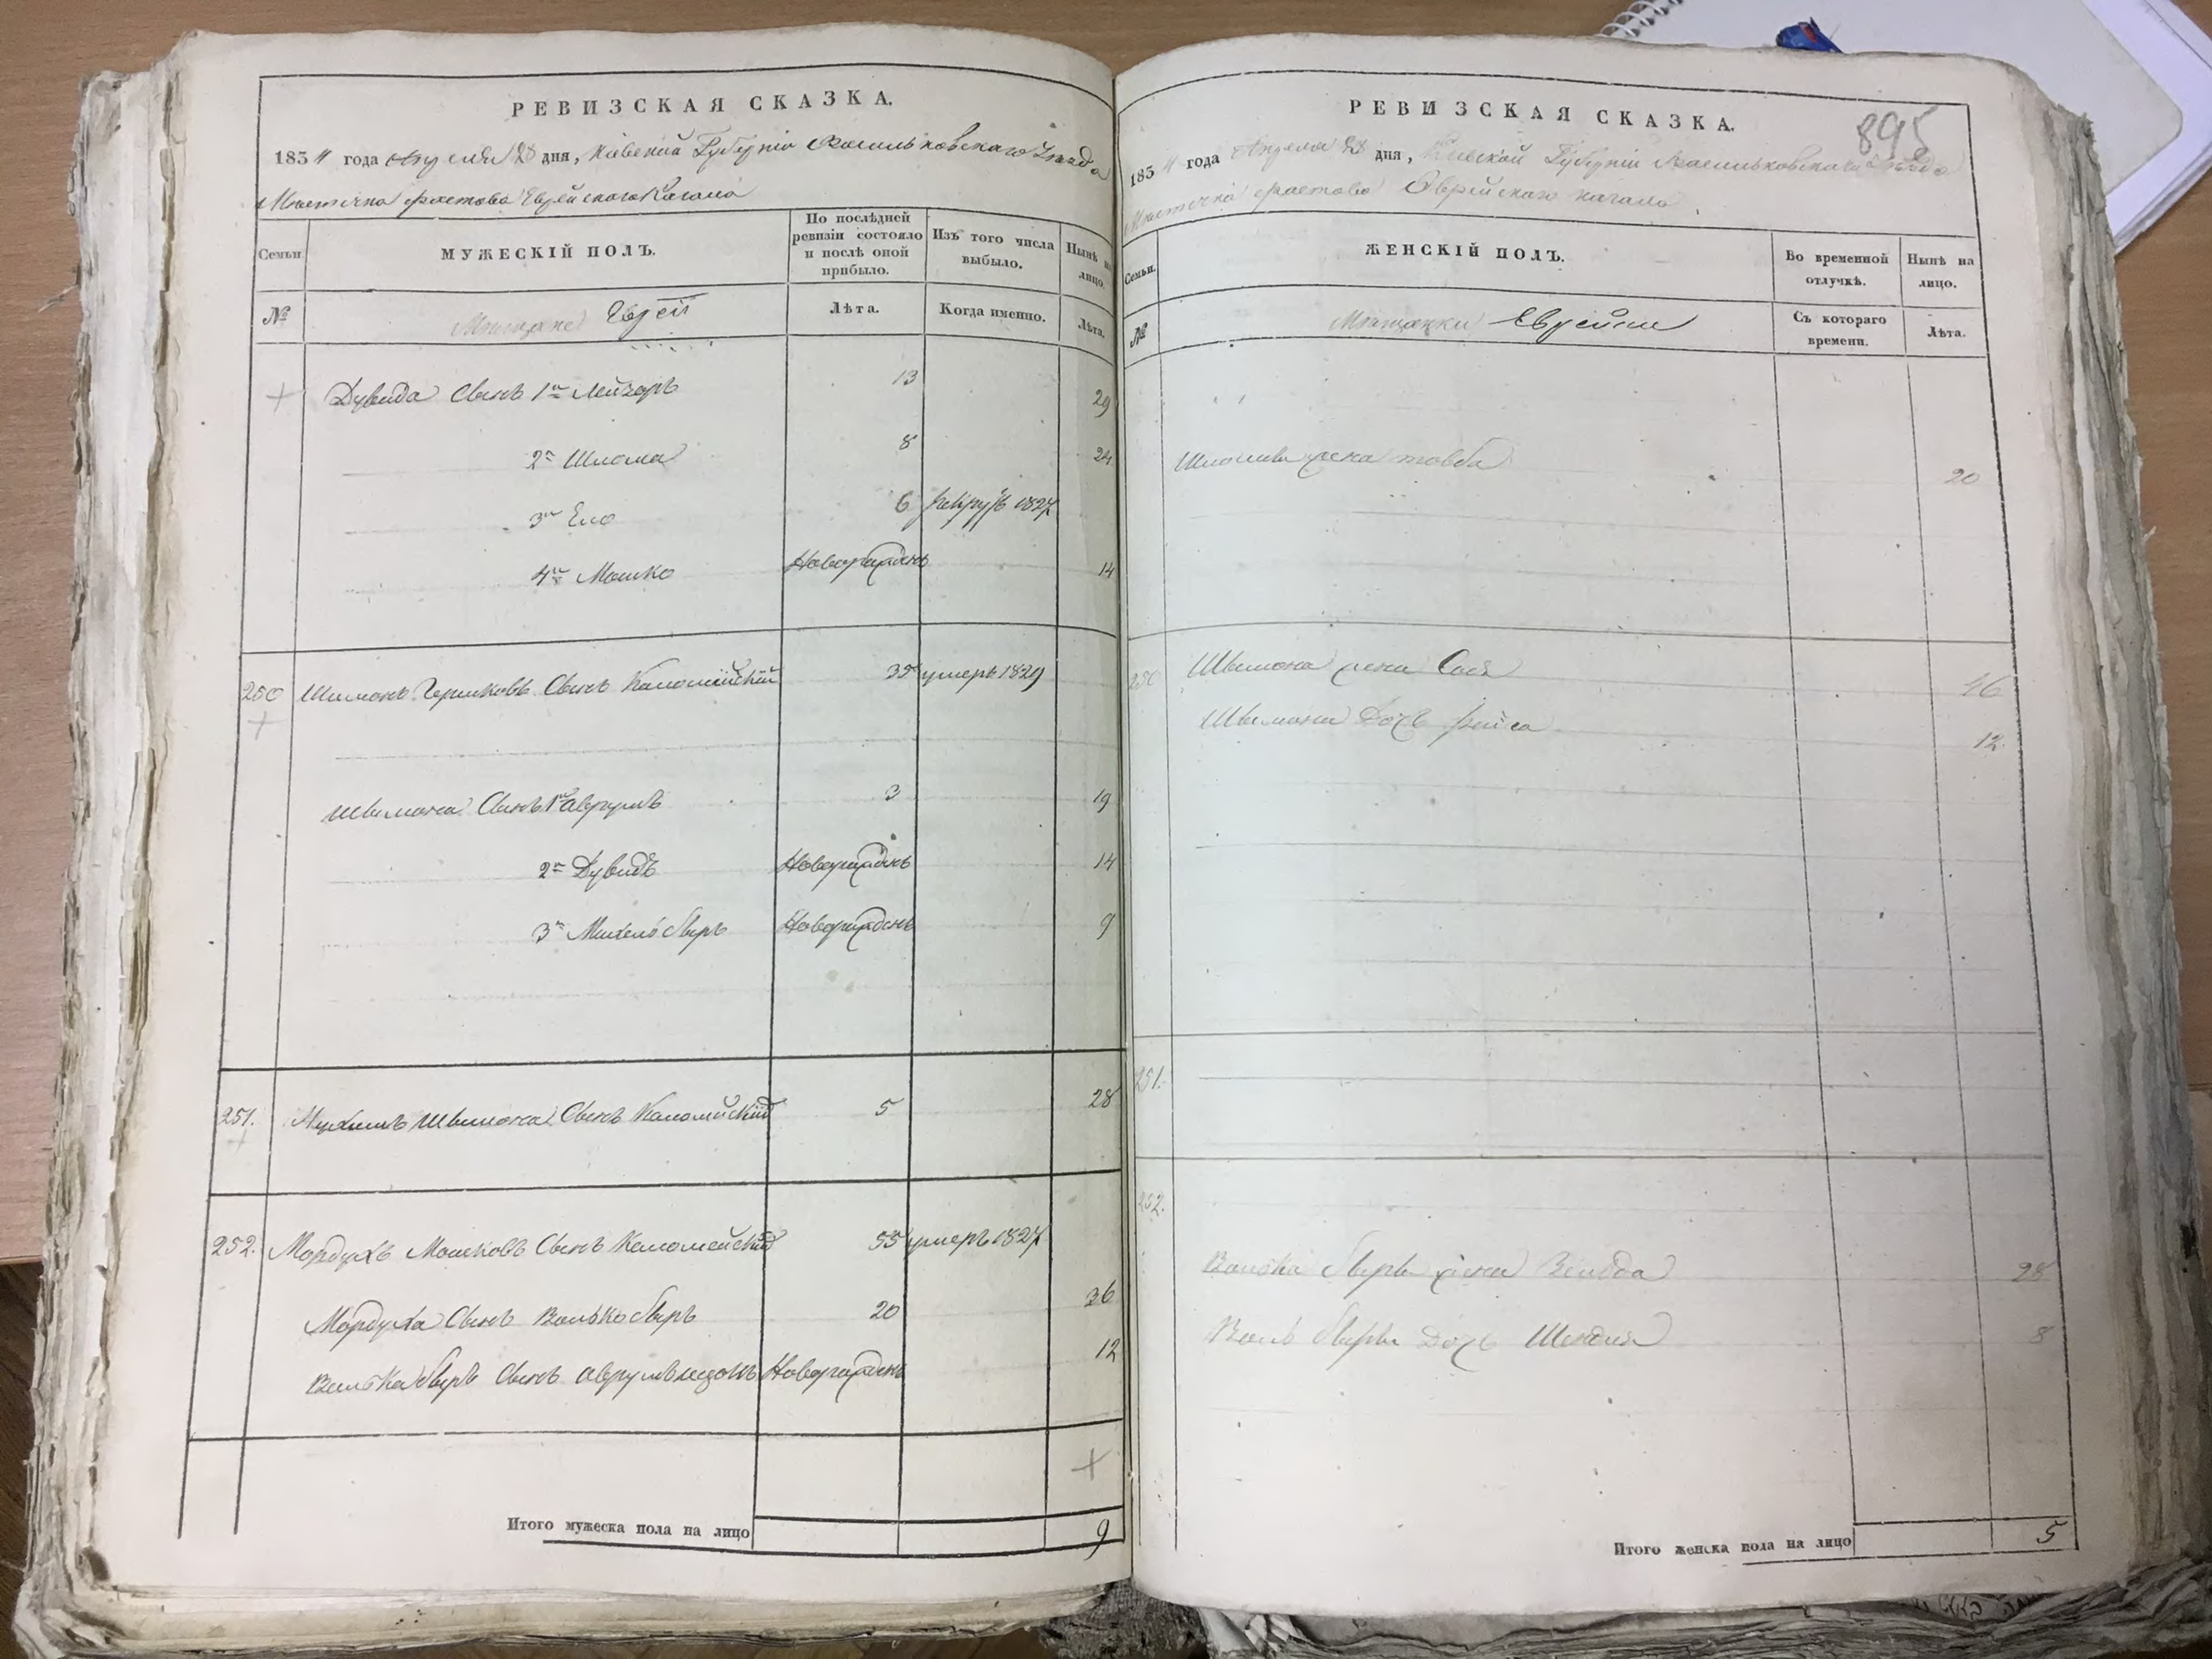 РЕВИЗСКАЯ СКАЗКА.
1834 года Апреля 28 дня, Кіевской Губерніи Васильковскаго Уезда
Местечка Фастова Еврейскаго Кагала
Семьи. МУЖЕСКІЙ ПОЛЪ. По послѣдней ревизіи состояло и послѣ оной прибыло. Изъ того числа выбыло. Нынѣ на лицо.
№ Мещане Евреи Лѣта. Когда именно. Лѣта.
Дувида Сынъ 1й Лейзоръ 13 29
2й Шлома 8 24
3й Ело 6 рекрутъ 1827
4й Мошко Новорожденъ 14
250 Шимонъ Гершковъ Сынъ Коломійскій 35 умеръ 1829
Шимона Сынъ 1й Аврумъ 3 19
2й Дувидъ Новорожденъ 14
3й Михель Беръ Новорожденъ 9
251. Нухимъ Шимона Сынъ Коломійскій 5 28
252. Мордухъ Мошковъ Сынъ Коломейскій 55 умеръ 1827
Мордуха Сынъ Волько Беръ 20 36
Волька Беръ Сынъ Аврумъ Новорожденъ 12
Итого мужеска пола на лицо 9
895
РЕВИЗСКАЯ СКАЗКА.
1834 года Апреля 28 дня, Кіевской Губерніи Васильковскаго Уезда
Местечка Фастова Еврейскаго кагала.
Семьи. ЖЕНСКІЙ ПОЛЪ. Во временной отлучкѣ. Нынѣ на лицо.
№ Мещанки Еврейки Съ котораго времени. Лѣта.
Шломы жена товба 20
250 Шимона жена Сося 46
Шимона Дочь Рейса 12.
251.
252.
Волька Беръ жена Велода 28
Воль Беръ Дочь Шендля 8
Итого женска пола на лицо 5